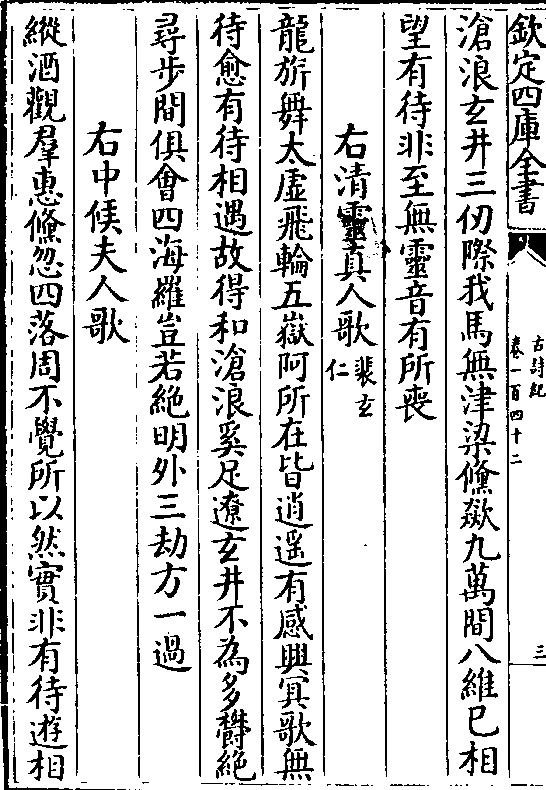 欽定四庫全書
古詩紀
卷一百四十二
三
滄浪玄井三仞際我馬無津梁儵欻九萬間八維已相
望有待非至無靈音有所喪
右清靈真人歌裴玄仁
龍旂舞太虛飛輪五嶽阿所在皆逍遥有感興冥歌無
待愈有待相遇故得和滄浪奚足遼玄井不為多鬱絶
尋步間俱會四海羅豈若絶明外三劫方一過
右中候夫人歌
縱酒觀羣惠儵忽四落周不覺所以然實非有待遊相